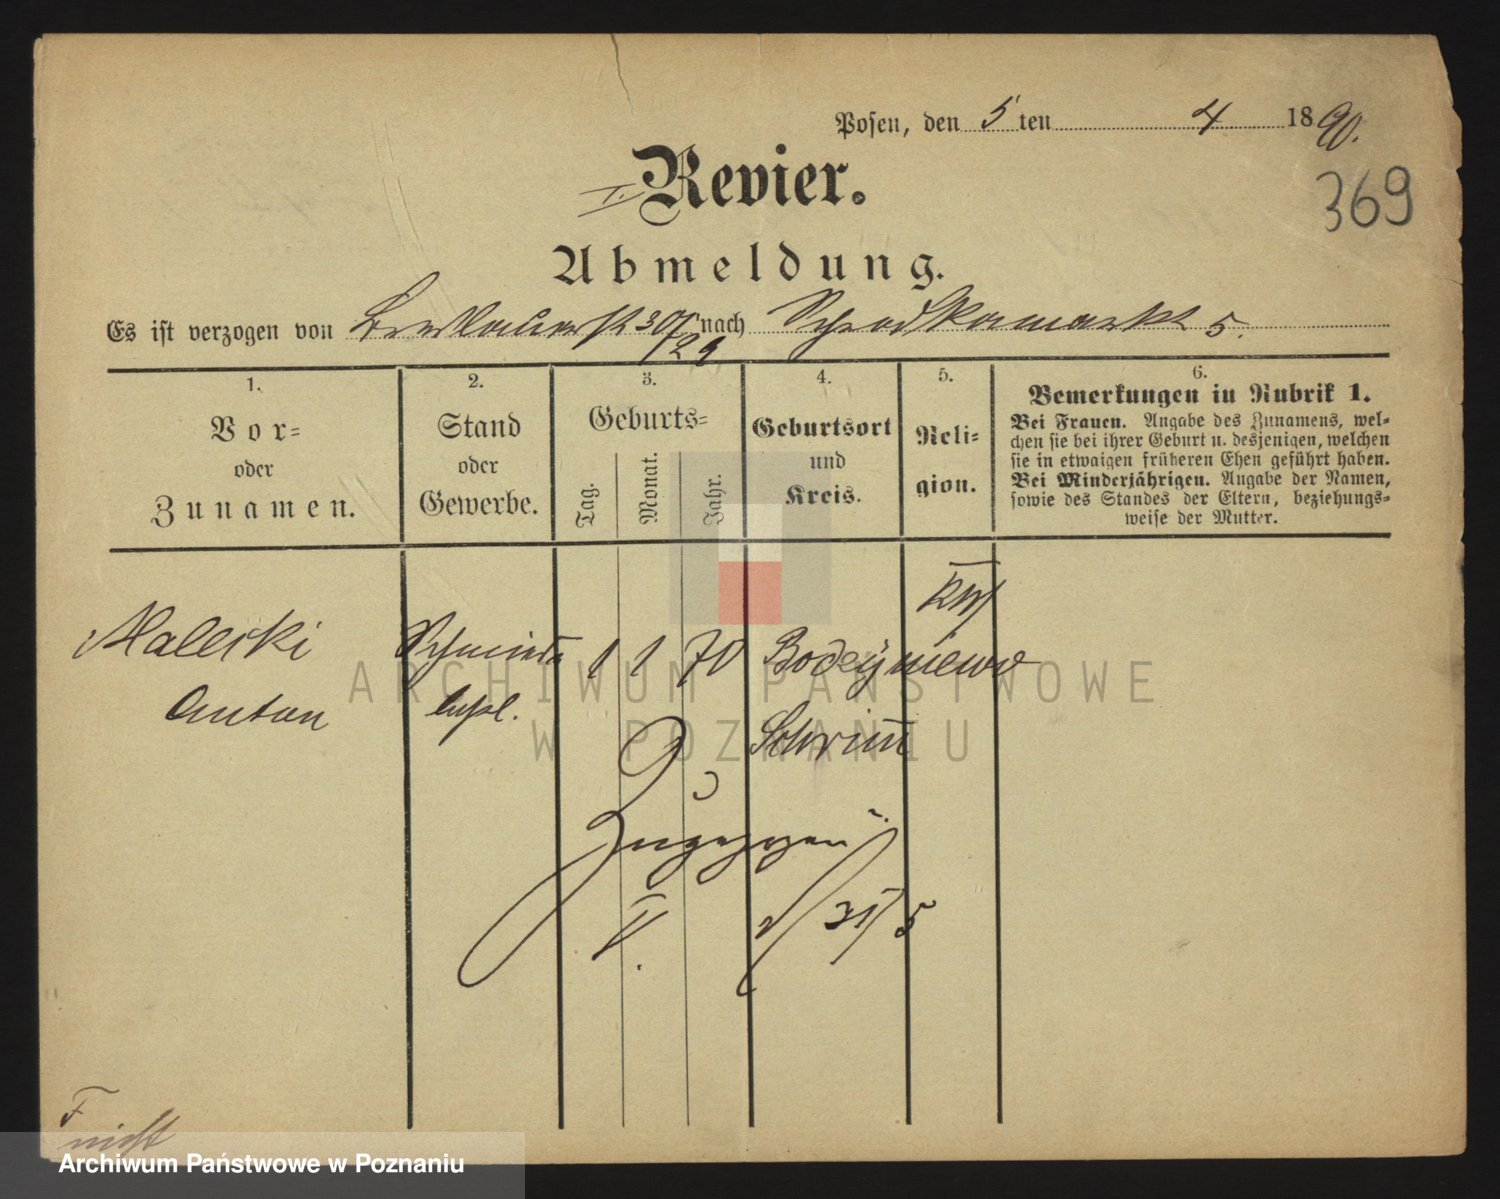 Posen, den 5 ten 4 1890.
369
I. Revier.
Abmeldung.
Es ist verzogen von Breslauerst 30/ nach Schrodkamarkt 5.
29
1.
Vor=
oder
Zunamen.
2.
Stand
oder
Gewerbe.
3.
Geburts=
Tag.
Monat.
Jahr.
4.
Geburtsort
und
Kreis.
5.
Reli=
gion.
6.
Bemerkungen in Rubrik 1.
Bei Frauen. Angabe des Zunamens, wel=
chen sie bei ihrer Geburt u. desjenigen, welchen
sie in etwaigen früheren Ehen geführt haben.
Bei Minderjährigen. Angabe der Namen,
sowie des Standes der Eltern, beziehungs=
weise der Mutter.
Malecki Schmiede 1 1 70
Anton
Schrim
Zugezogen
V. 31/5
nicht
ARCHIWUM PAŃSTWOWE
W POZNANIU
Archiwum Państwowe w Poznaniu